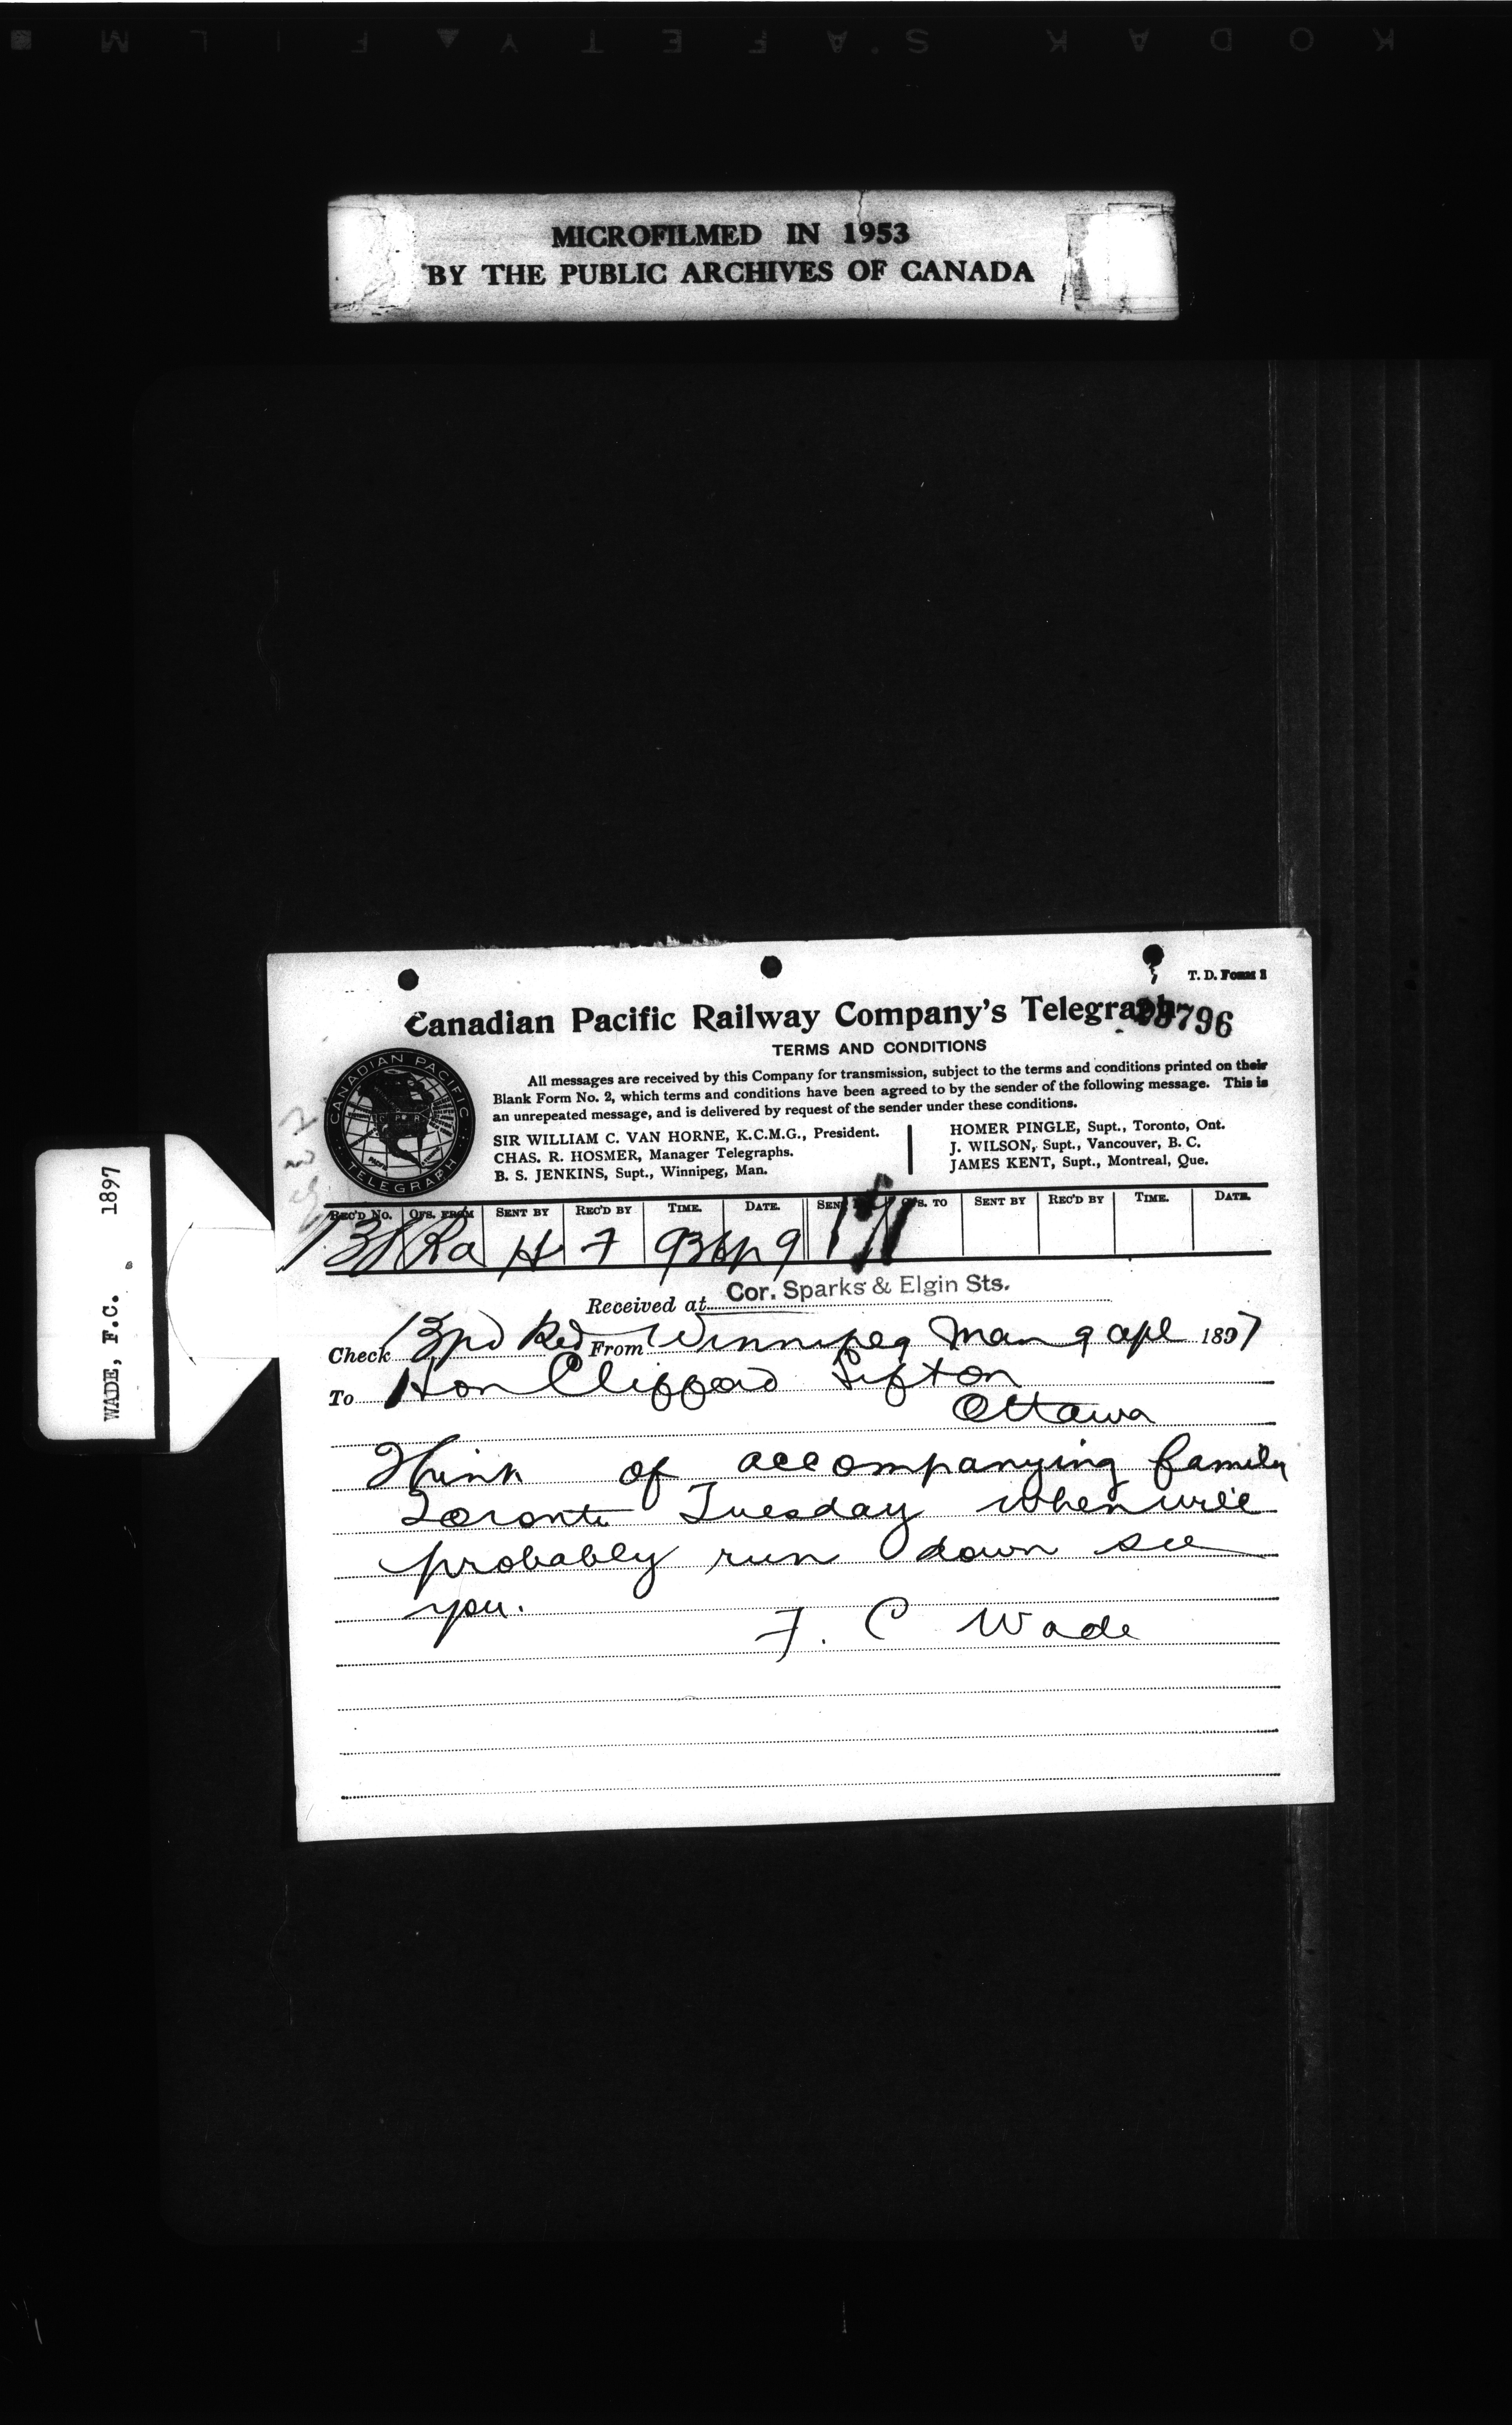 KODAK SAFETY FILM
MICROFILMED IN 1953
BY THE PUBLIC ARCHIVES OF CANADA
WADE, F.C. 1897
T. D. Form 1
Canadian Pacific Railway Company's Telegraph
796
TERMS AND CONDITIONS
All messages are received by this Company for transmission, subject to the terms and conditions printed on their
Blank Form No. 2, which terms and conditions have been agreed to by the sender of the following message. This is
an unrepeated message, and is delivered by request of the sender under these conditions.
SIR WILLIAM C. VAN HORNE, K.C.M.G., President.
CHAS. R. HOSMER, Manager Telegraphs.
B. S. JENKINS, Supt., Winnipeg, Man.
HOMER PINGLE, Supt., Toronto, Ont.
J. WILSON, Supt., Vancouver, B. C.
JAMES KENT, Supt., Montreal, Que.
CANADIAN PACIFIC
C P R
TELEGRAPH
REC'D No. OFS. FROM SENT BY REC'D BY TIME. DATE. SENT OFS. TO SENT BY REC'D BY TIME. DATE.
Ra H 7 9
Received at Cor. Sparks & Elgin Sts.
Check 13 pd From Winnipeg Man 9 apl 1897
To Hon Clifford Sifton
Ottawa
Think of accompanying family
Toronto Tuesday when will
probably run down see
you.
F. C Wade